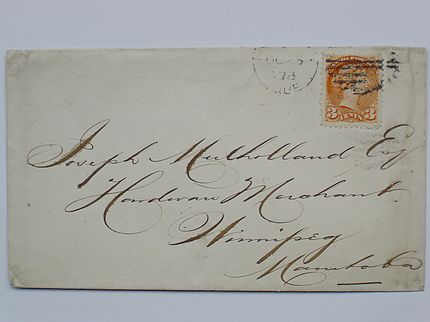 78
QUE
3 CENTS 3
Joseph Mulholland Esq
Hardware Merchant.
Winnipeg
Manitoba